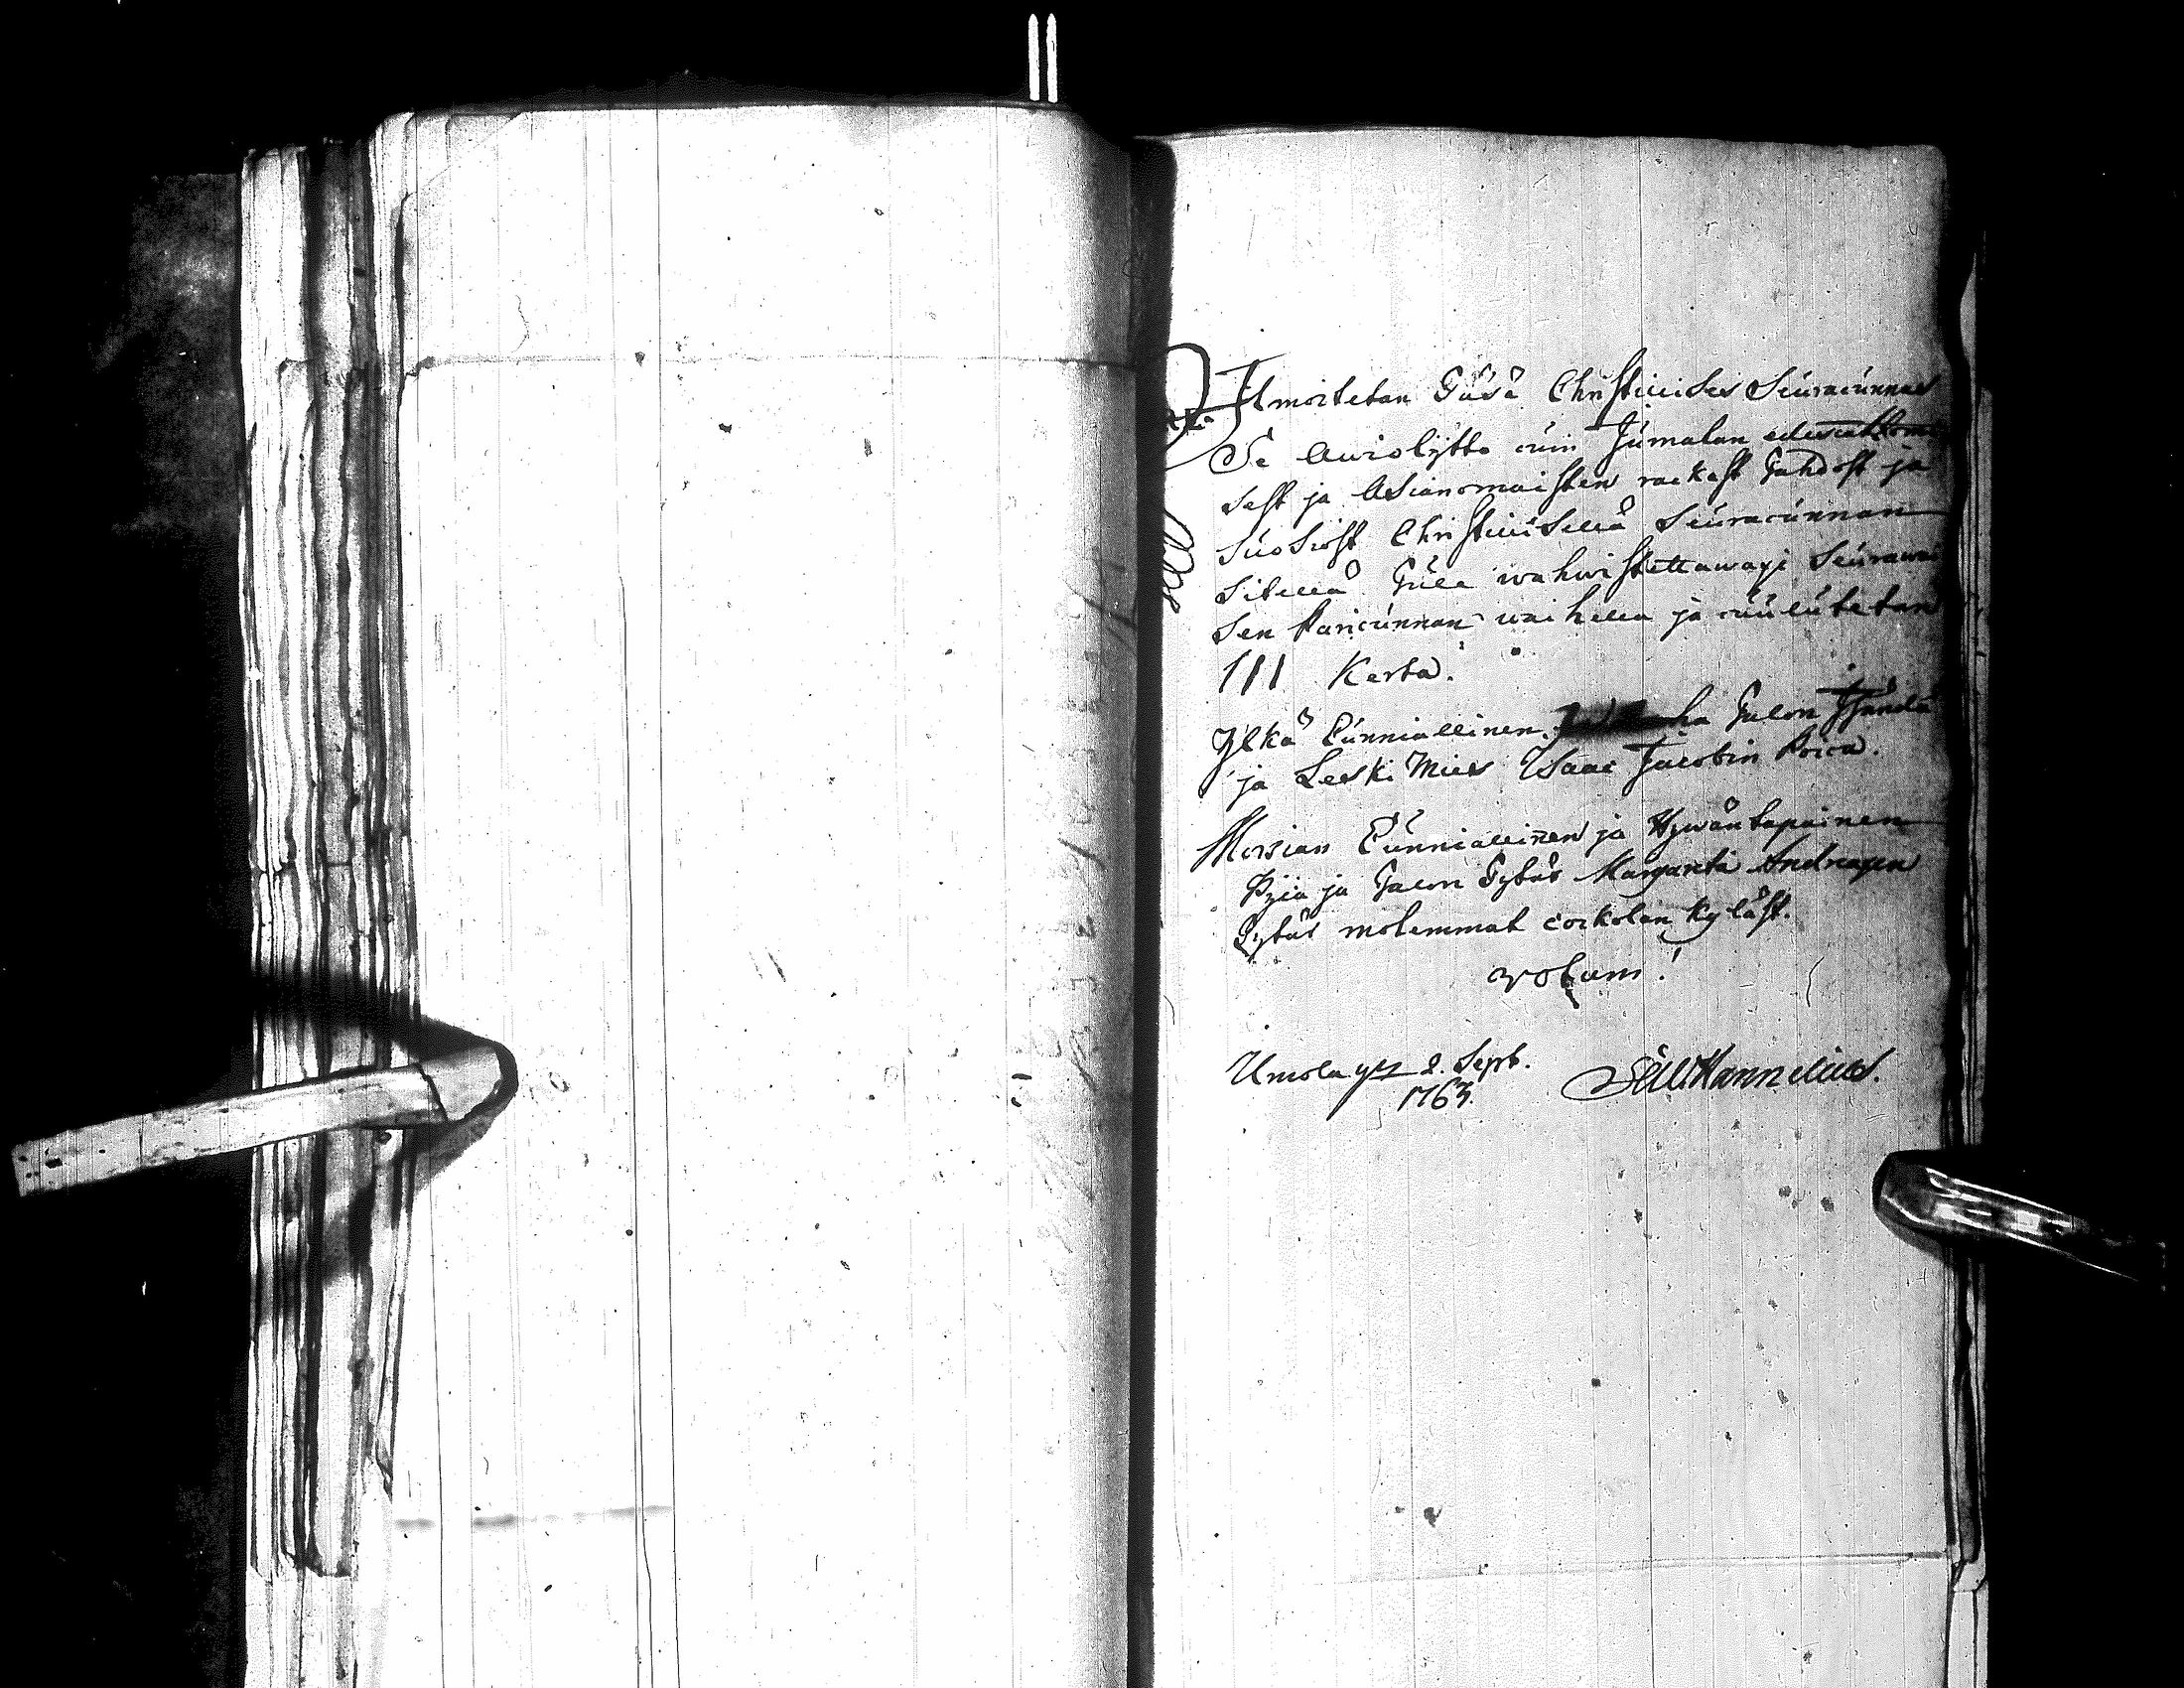 Ilmoitetan Täsä Christillises Seuracunnas
Se Awiolijtto cuin Jumalan edescatzomi
sest ja Asianomaisten rackast Tahdost ja
Suosiost Christillisellä Seuracunnan
Sitellä Tule wahwistettawaxi Seurawai
sen Pariscunnan waihella ja cuulutetan
III Kerta.
Ylkä Cunniallinen. Talon Isändä
ja Leski Mies Isaac Jacobin Poica.
Morsian Cunniallinen ja Hywäntapainen
Pijca ja Talon Tytär Margareta Andreaxen
Tytär molemmat cockolan Kyläst.
votum!
Umola 2. Sept.
1763.